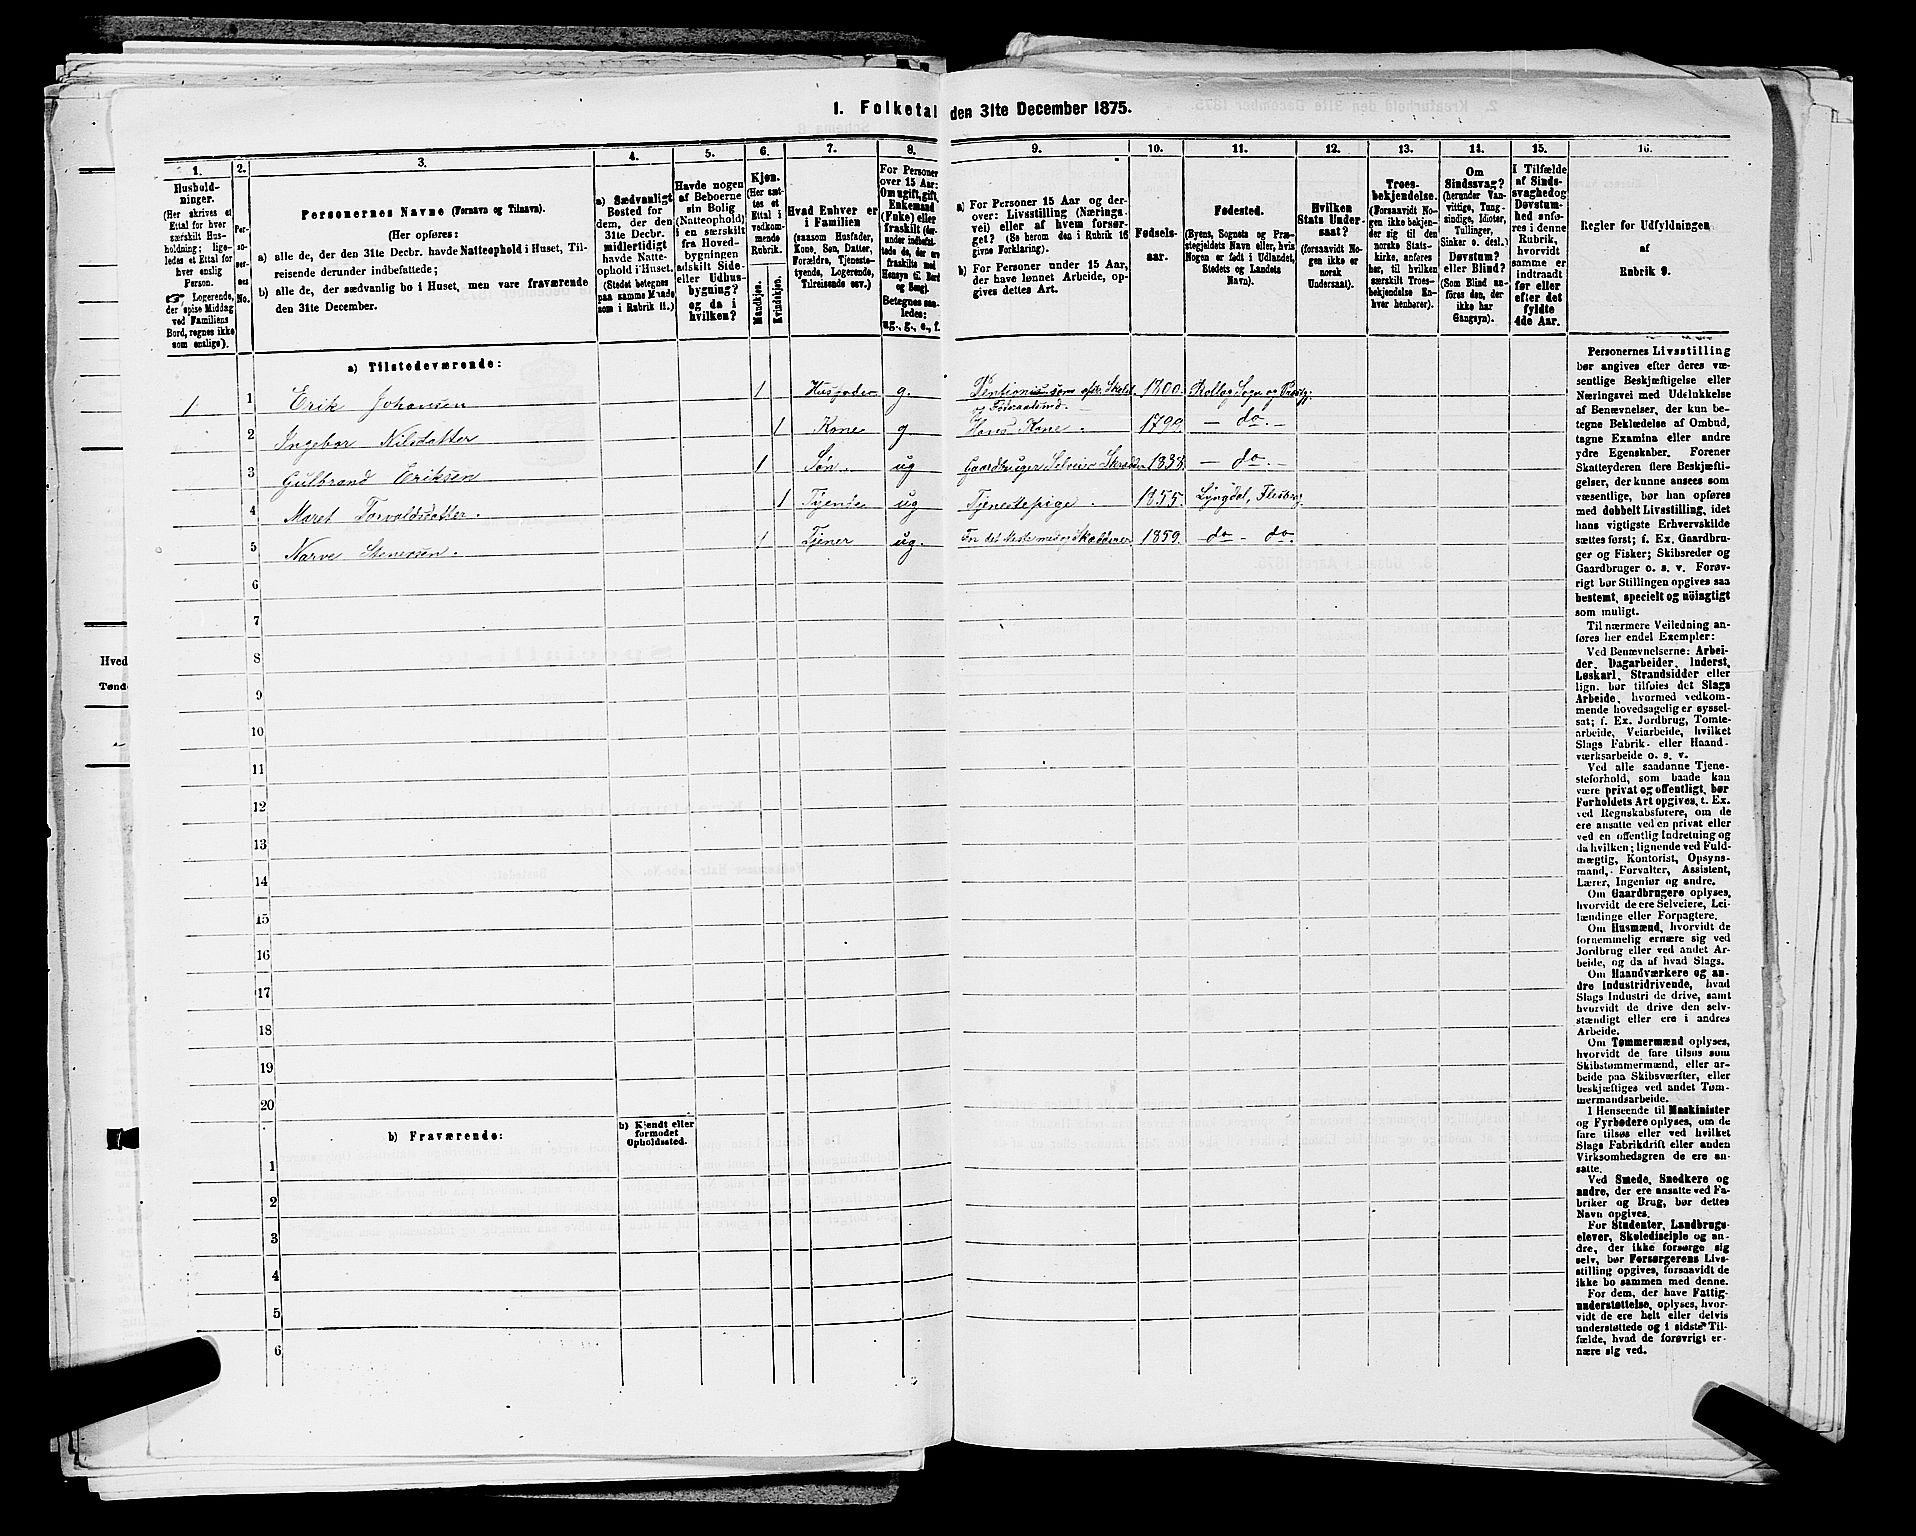 1. Folketal den 31te December 1875.
1. 2. 3. 4. 5. 6. 7. 8. 9. 10. 11. 12. 13. 14. 15. 16.
Hushold-
ninger.
(Her skrives et
Ettal for hver
særskilt Hus-
holdning; lige-
ledes et Ettal for
hver enslig
Person.
☞ Logerende,
der spise Middag
ved Familiens
Bord, regnes ikke
som enslige).
Per-
so-
ner-
nes
No.
Personernes Navne (Fornavn og Tilnavn).
(Her opføres:
a) alle de, der den 31te Decbr. havde Natteophold i Huset, Til-
reisende derunder indbefattede;
b) alle de, der sædvanlig bo i Huset, men vare fraværende
den 31te December.
a) Sædvanligt
Bosted for
dem, der den
31te Decbr.
midlertidigt
havde Natte-
ophold i Huset.
(Stedet betegnes
paa samme Maade
som i Rubrik 11.)
Havde nogen
af Beboerne
sin Bolig
(Natteophold)
i en særskilt
fra Hoved-
bygningen
adskilt Side-
eller Udhus-
bygning?
og da i
hvilken?
Kjøn.
(Her sæt-
tes et
Ettal i
vedkom-
mende
Rubrik.
Mandkjøn.
Kvindekjøn.
Hvad Enhver er
i Familien
(saasom Husfader,
Kone, Søn, Datter,
Forældre, Tjeneste-
tyende, Logerende,
Tilreisende osv.)
For Personer
over 15 Aar:
Om ugift, gift,
Enkemand
(Enke) eller
fraskilt (der-
under indbefat-
tede de, der ere
fraskilte med
Hensyn til Bord
og Seng).
Betegnes saa-
ledes:
ug., g., e., f.
a) For Personer 15 Aar og der-
over: Livsstilling (Nærings-
vei) eller af hvem forsør-
get? (Se herom den i Rubrik 16
givne Forklaring).
b) For Personer under 15 Aar,
der have lønnet Arbeide, op-
gives dettes Art.
Fødsels-
aar.
Fødested.
(Byens, Sognets og Præ-
stegjeldets Navn eller, hvis
Nogen er født i Udlandet,
Stedets og Landets
Navn).
Hvilken
Stats Under-
saat?
(forsaavidt No-
gen ikke er
norsk
Undersaat).
Troes-
bekjendelse.
(Forsaavidt No-
gen ikke bekjen-
der sig til den
norske Stats-
kirke, anføres
her, til hvilken
særskilt Troes-
bekjendelse En-
hver henhører).
Om
Sindssvag?
(herunder Van-
vittige, Tung-
sindige, Idioter,
Tullinger,
Sinker o. desl.)
Døvstum?
eller Blind?
(Som Blind an-
føres den, der
ikke har
Gangsyn).
I Tilfælde
af Sinds-
svaghed og
Døvstum-
hed anfø-
res i denne
Rubrik,
hvorvidt
samme er
indtraadt
før eller
efter det
fyldte
4de Aar.
Regler for Udfyldningen
af
Rubrik 9.
a) Tilstedeværende:
1 1 Erik Johansen 1 Husfader g. 1800. Rollag Sogn og
2 Ingebor Nilsdatter 1 Kone g Hans Kone. 1799. — do. —
3 Gulbrand Eriksen 1 Søn ug Gaardbruger Selveier 1838. — do. —
4 Maret Torvaldsdatter. 1 Tyende ug Tjenestepige. 1855. Lyngdal, Flesberg
5 Narve Stenersen. 1 Tjener ug. 1859. — do — do.
6
7
8
9
10
11
12
13
14
15
16
17
18
19
20
b) Fraværende:
b) Kjendt eller
formodet
Opholdssted.
1
2
3
4
5
6
Personernes Livsstilling
bør angives efter deres væ-
sentlige Beskjæftigelse eller
Næringsvei med Udelukkelse
af Benævnelser, der kun be-
tegne Beklædelse af Ombud,
tagne Examina eller andre
ydre Egenskaber. Forener
Skatteyderen flere Beskjæfti-
gelser, der kunne ansees som
væsentlige, bør han opføres
med dobbelt Livsstilling, idet
hans vigtigste Erhvervskilde
sættes først; f. Ex. Gaardbru-
ger og Fisker; Skibsreder og
Gaardbruger o. s. v. Forøv-
rigt bør Stillingen opgives saa
bestemt, specielt og nöiagtigt
som muligt.
Til nærmere Veiledning an-
føres her endel Exempler:
Ved Benævnelserne: Arbei-
der, Dagarbeider, Inderst,
Løskarl, Strandsidder eller
lign. bør tilføies det Slags
Arbeide, hvormed vedkom-
mende hovedsagelig er syssel-
sat; f. Ex. Jordbrug, Tomte-
arbeide, Veiarbeide, hvilket
Slags Fabrik- eller Haand-
værksarbeide o. s. v.
Ved alle saadanne Tjene-
steforhold, som baade kan
være privat og offentligt, bør
Forholdets Art opgives, t. Ex.
ved Regnskabsførere, om de
ere ansatte ved en privat eller
ved en offentlig Indretning og
da hvilken; lignende ved Fuld-
mægtig, Kontorist, Opsyns-
mand, Forvalter, Assistent,
Lærer, Ingeniør og andre.
Om Gaardbrugere oplyses,
hvorvidt de ere Selveiere, Lei-
lændinge eller Forpagtere.
Om Husmænd, hvorvidt de
fornemmelig ernære sig ved
Jordbrug eller ved andet Ar-
beide, og da af hvad Slags.
Om Haandværkere og an-
dre Industridrivende, hvad
Slags Industri de drive, samt
hvorvidt de drive den selv-
stændigt eller ere i andres
Arbeide.
Om Tømmermænd oplyses,
hvorvidt de fare tilsøs som
Skibstømmermænd, eller ar-
beide paa Skibsværfter, eller
beskjæftiges ved andet Tøm-
mermandsarbeide.
I Henseende til Maskinister
og Fyrbødere oplyses, om de
fare tilsøs eller ved hvilket
Slags Fabrikdrift eller anden
Virksomhedsgren de ere an-
satte.
Ved Smede, Snedkere og
andre, der ere ansatte ved Fa-
briker og Brug, bør dettes
Navn opgives.
For Studenter, Landbrugs-
elever, Skoledisciple og an-
dre, der ikke forsørge sig
selv, bør Forsørgerens Livs-
stilling opgives, forsaavidt de
ikke bo sammen med denne.
For dem, der have Fattig-
understøttelse, oplyses, hvor-
vidt de ere helt eller delvis
understøttede og i sidste Til-
fælde, hvad de forøvrigt er-
nære sig ved.
Hved
Tønde